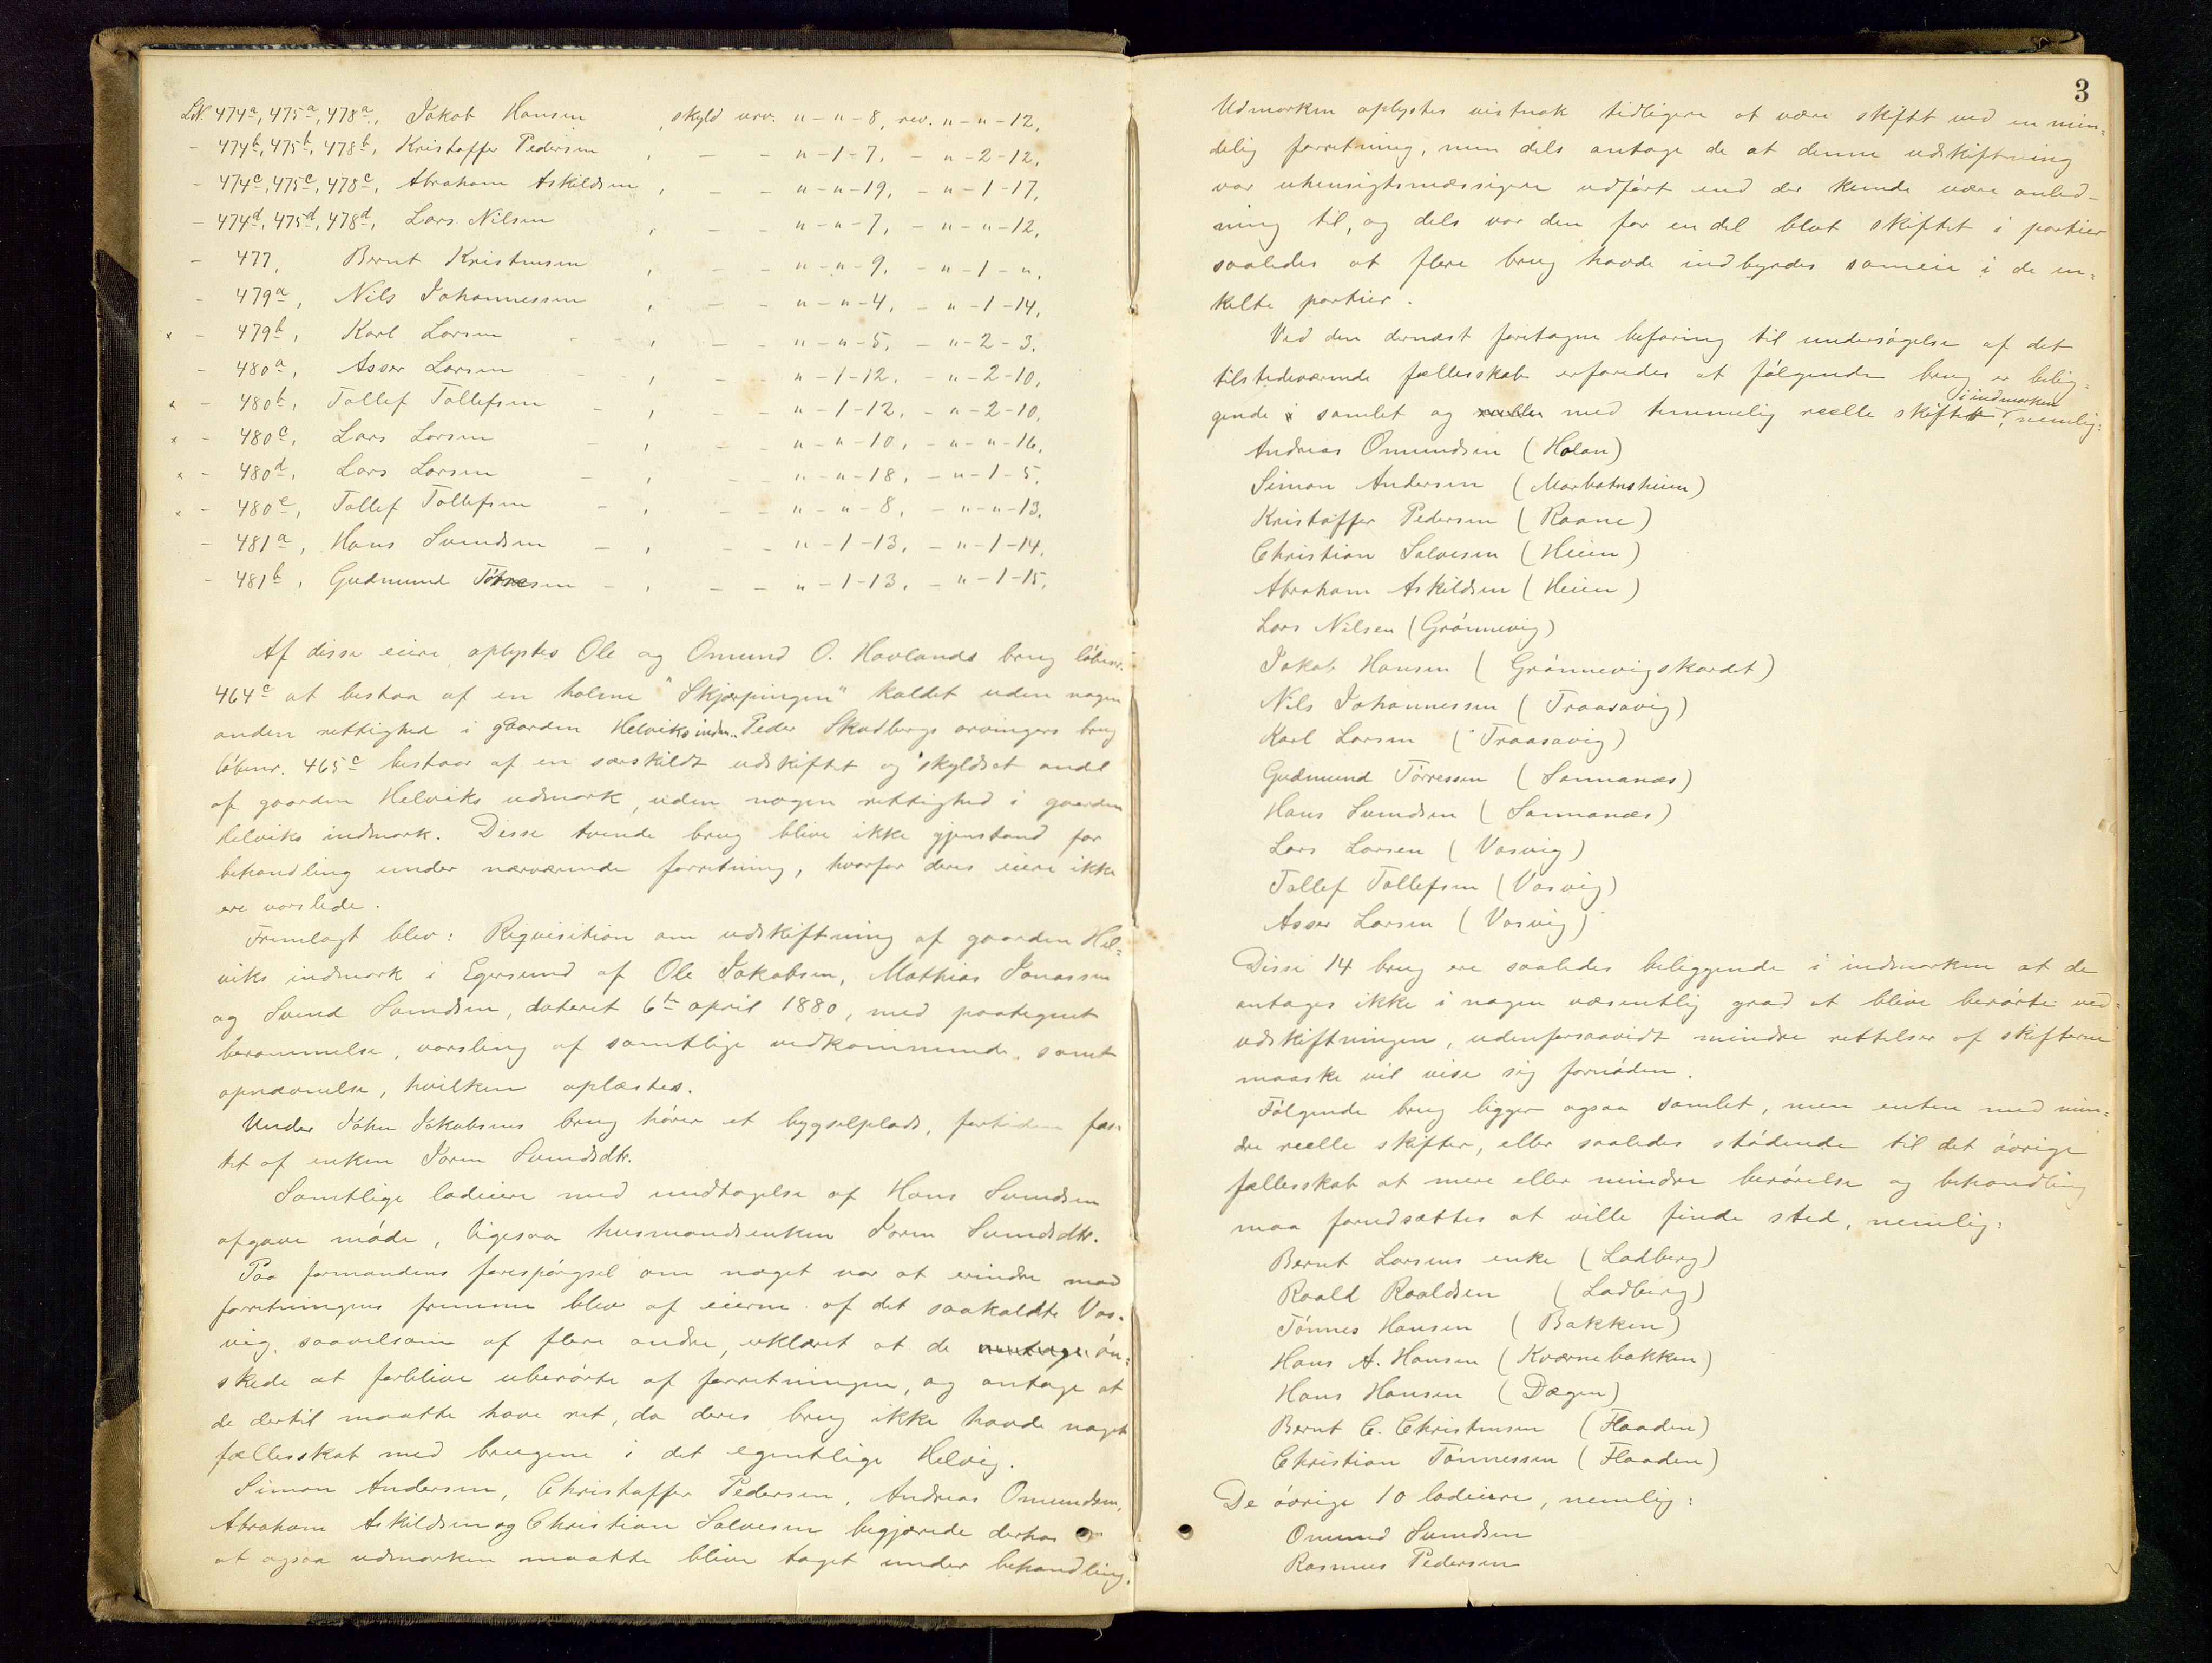 Lnr. 474a, 475a, 478a, Jakob Hansen , skyld urv. " - " - 8, rev. " - " - 12,
- 474b, 475b, 478b, Kristoffer Pedersen , - - " - 1 - 7, - " - 2 - 12,
- 474c, 475c, 478c, Abraham Askildsen , - - " - " - 19, - " - 1 - 17,
- 474d, 475d, 478d, Lars Nilsen , - - " - " - 7, - " - " - 12,
- 477, Bernt Kristensen , - - " - " - 9, - " - 1 - ",
- 479a, Nils Johannessen , - - " - " - 4, - " - 1 - 14,
x - 479b, Karl Larsen - - , - - " - " - 5, - " - 2 - 3.
- 480a, Asser Larsen - - , - - " - 1 - 12, - " - 2 - 10,
x - 480b, Tollef Tollefsen - , - - " - 1 - 12, - " - 2 - 10,
x - 480c, Lars Larsen - , - - " - " - 10, - " - " - 16,
x - 480d, Lars Larsen - , - - " - " - 18, - " - 1 - 5,
x - 480e, Tollef Tollefsen - , - - " - " - 8, - " - " - 13,
- 481a, Hans Svendsen - , - - " - 1 - 13, - " - 1 - 14,
- 481b, Gudmund Törresen - , - - " - 1 - 13, - " - 1 - 15,
Af disse eiere oplystes Ole og Omund O. Havlands brug löbenr.
464c at bestaa af en holme "Skjærpingen" kaldet uden nogen
anden rettighed i gaarden Helviks indm. Peder Skadbergs arvingers brug
löbenr. 465c bestaar af en særskildt udskiftet og skyldsat andel
af gaarden Helviks udmark, uden nogen rettighed i gaarden
Helviks indmark. Disse tvende brug blive ikke gjenstand for
behandling under nærværende forretning, hvorfor deres eiere ikke
ere varslede.
Fremlagt blev: Reqvisition om udskiftning af gaarden Hel-
viks indmark i Egersund af Ole Jakobsen, Mathias Jonassen
og Svend Svendsen, dateret 6te april 1880, med paategnet
berammelse, varsling af samtlige vedkommende, samt
opnævnelse, hvilken oplæstes.
Under John Jakobsens brug hörer et bygselplads, fortiden fæs-
tet af enken Joren Svendsdtr.
Samtlige lodeiere med undtagelse af Hans Svendsen
afgave möde, ligesaa husmandsenken Joren Svendsdtr.
Paa formandens forespörgsel om noget var at erindre mod
forretningens fremme blev af eierne af det saakaldte Vas-
vig, saavelsom af flere andre, erklæret at de ön-
skede at forblive uberörte af forretningen, og antage at
de dertil maatte have ret, da deres brug ikke havde noget
fællesskab med brugene i det egentlige Helvig.
Simon Andersen, Christoffer Pedersen, Andreas Omundsen,
Abraham Askildsen og Christian Salvesen begjærede derhos
at ogsaa udmarken maatte blive taget under behandling.
3
Udmarken oplystes vistnok tidligere at være skiftt ved en min-
delig forretning, men dels antage de at denne udskiftning
var uhensigtsmæssigere udfört end der kunde være anled-
ning til, og dels var den for en del blot skiftet i partier
saaledes at flere brug havde indbyrdes sameie i de en-
kelte partier.
Ved den dernæst foretagne befaring til undersögelse af det
tilstedeværende fællesskab erfaredes at fölgende brug er belig-
gende samlet og med temmelig reelle skifter i indmarken, nemlig:
Andreas Omundsen (Holan)
Simon Andersen (Marbotnsheien)
Kristoffer Pedersen (Raane)
Christian Salvesen (Heien)
Abraham Askildsen (Heien)
Lars Nilsen (Grönnevig)
Jakob Hansen (Grönnevigskardet)
Nils Johannessen (Traasavig)
Karl Larsen (Traasavig)
Gudmund Törressen (Sannanæs)
Hans Svendsen (Sannanæs)
Lars Larsen (Vasvig)
Tollef Tollefsen (Vasvig)
Asser Larsen (Vasvig)
Disse 14 brug ere saaledes beliggende i indmarken at de
antages ikke i nogen væsentlig grad at blive berörte ved
udskiftningen, udenforsaavidt mindre rettelser af skifterne
maaske vil vise sig fornöden.
Fölgende brug ligger ogsaa samlet, men enten med min-
dre reelle skifter, eller saaledes stödende til det övrige
fællesskab at mere eller mindre berörelse og behandling
maa forudsættes at ville finde sted, nemlig:
Bernt Larsens enke (Ladberg)
Roald Roaldsen (Ladberg)
Tönnes Hansen (Bakken)
Hans A. Hansen (Kværnebakken)
Hans Hansen (Dægen)
Bernt C. Christensen (Flaaden)
Christian Tönnessen (Flaaden)
De övrige 10 lodeiere, nemlig:
Omund Svendsen
Rasmus Pedersen